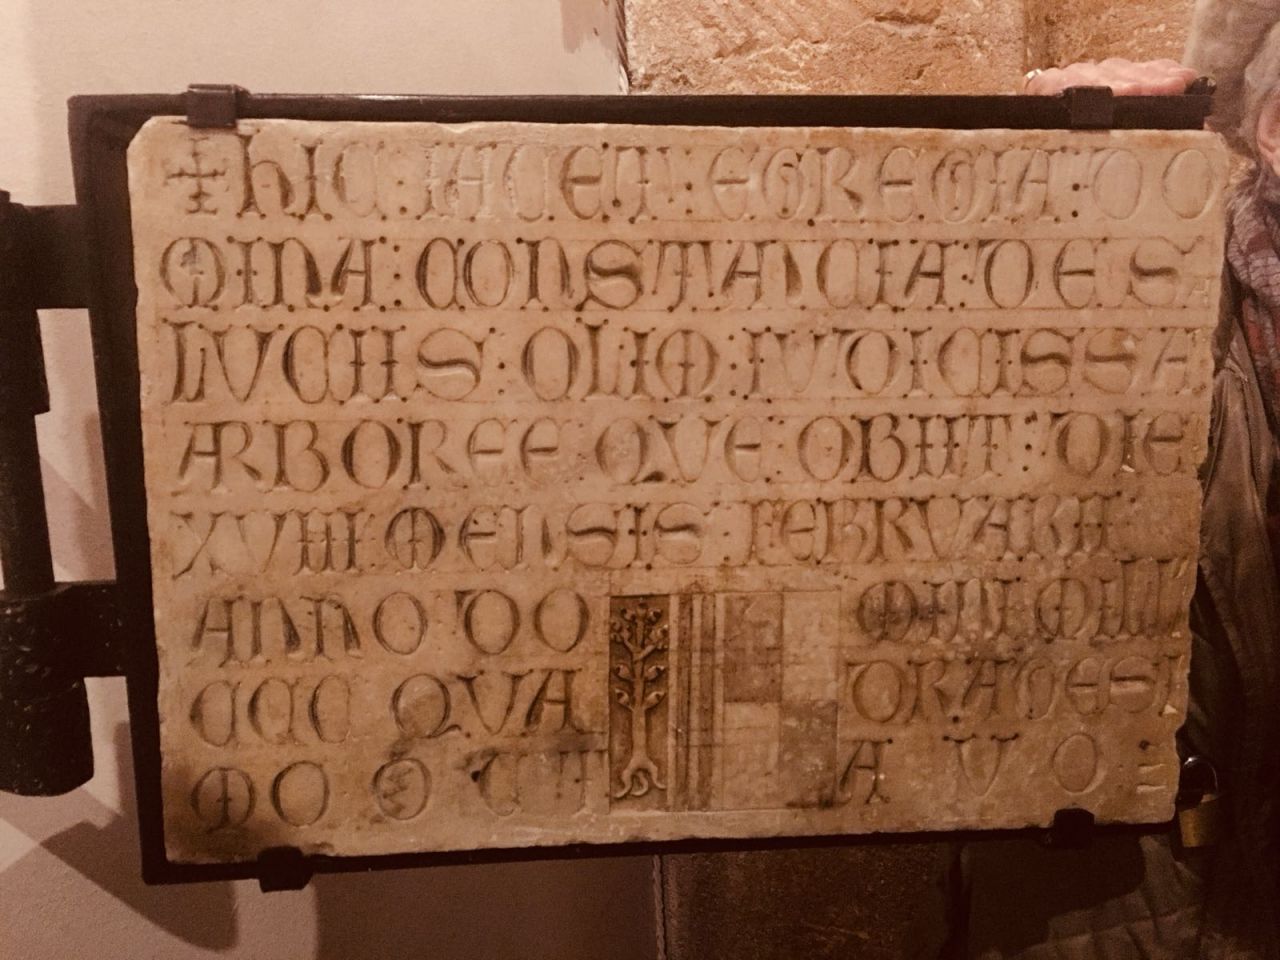 ✠ HIC : IACET : EGREGIA : DO
MINA : CONSTANCIA : DE S
LUCIIS : OLIM : IUDICISSA
ARBOREE QUE : OBIIT : DIE
XVIII MENSIS : FEBRUARII
ANNO DO MINI MILL
CCC QUA DRAGESI
MO OCTA VO :